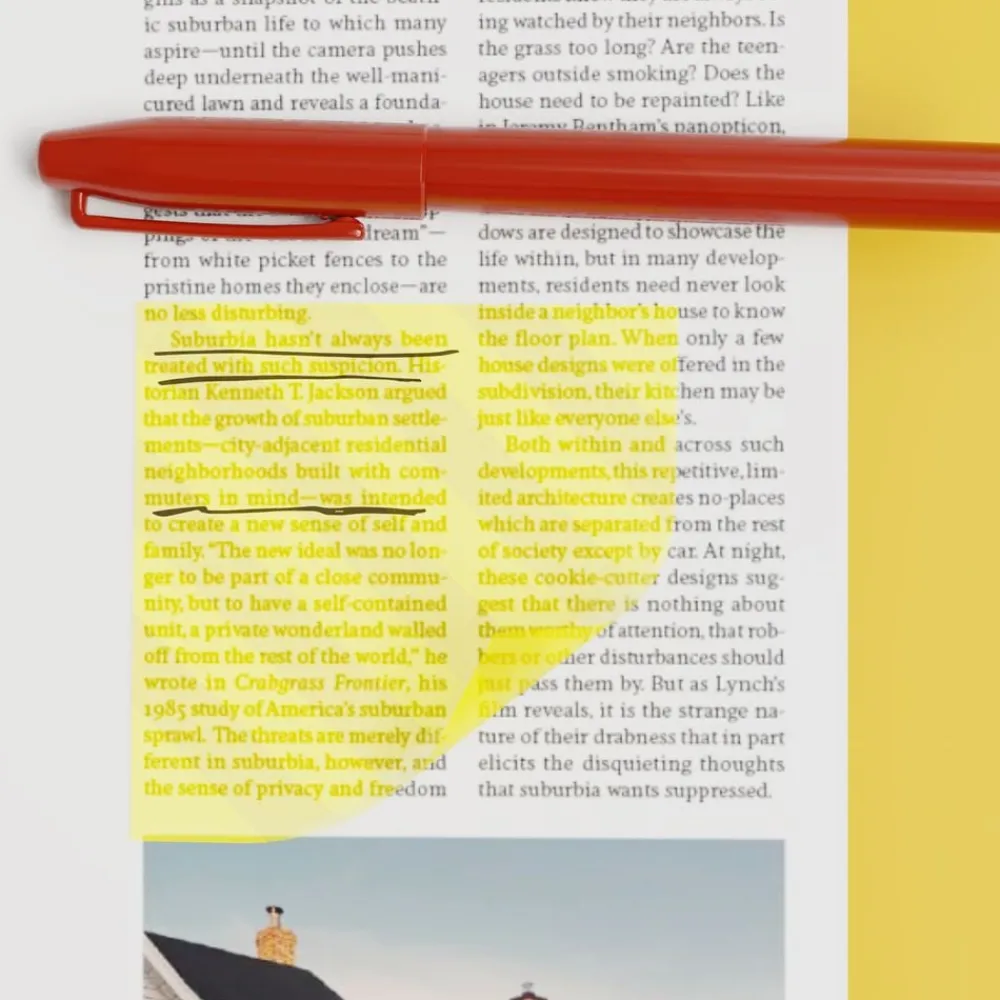 ic suburban life to which many
aspire—until the camera pushes
deep underneath the well-mani-
cured lawn and reveals a founda-
dream"—
from white picket fences to the
pristine homes they enclose—are
no less disturbing.
Suburbia hasn't always been
treated with such suspicion. His-
torian Kenneth T. Jackson argued
that the growth of suburban settle-
ments—city-adjacent residential
neighborhoods built with com-
muters in mind—was intended
to create a new sense of self and
family. "The new ideal was no lon-
ger to be part of a close commu-
nity, but to have a self-contained
unit, a private wonderland walled
off from the rest of the world," he
wrote in Crabgrass Frontier, his
1985 study of America's suburban
sprawl. The threats are merely dif-
ferent in suburbia, however, and
the sense of privacy and freedom
ing watched by their neighbors. Is
the grass too long? Are the teen-
agers outside smoking? Does the
house need to be repainted? Like
in Jeremy Bentham's panopticon,
dows are designed to showcase the
life within, but in many develop-
ments, residents need never look
inside a neighbor's house to know
the floor plan. When only a few
house designs were offered in the
subdivision, their kitchen may be
just like everyone else's.
Both within and across such
developments, this repetitive, lim-
ited architecture creates no-places
which are separated from the rest
of society except by car. At night,
these cookie-cutter designs sug-
gest that there is nothing about
them worthy of attention, that rob-
bers or other disturbances should
just pass them by. But as Lynch's
film reveals, it is the strange na-
ture of their drabness that in part
elicits the disquieting thoughts
that suburbia wants suppressed.